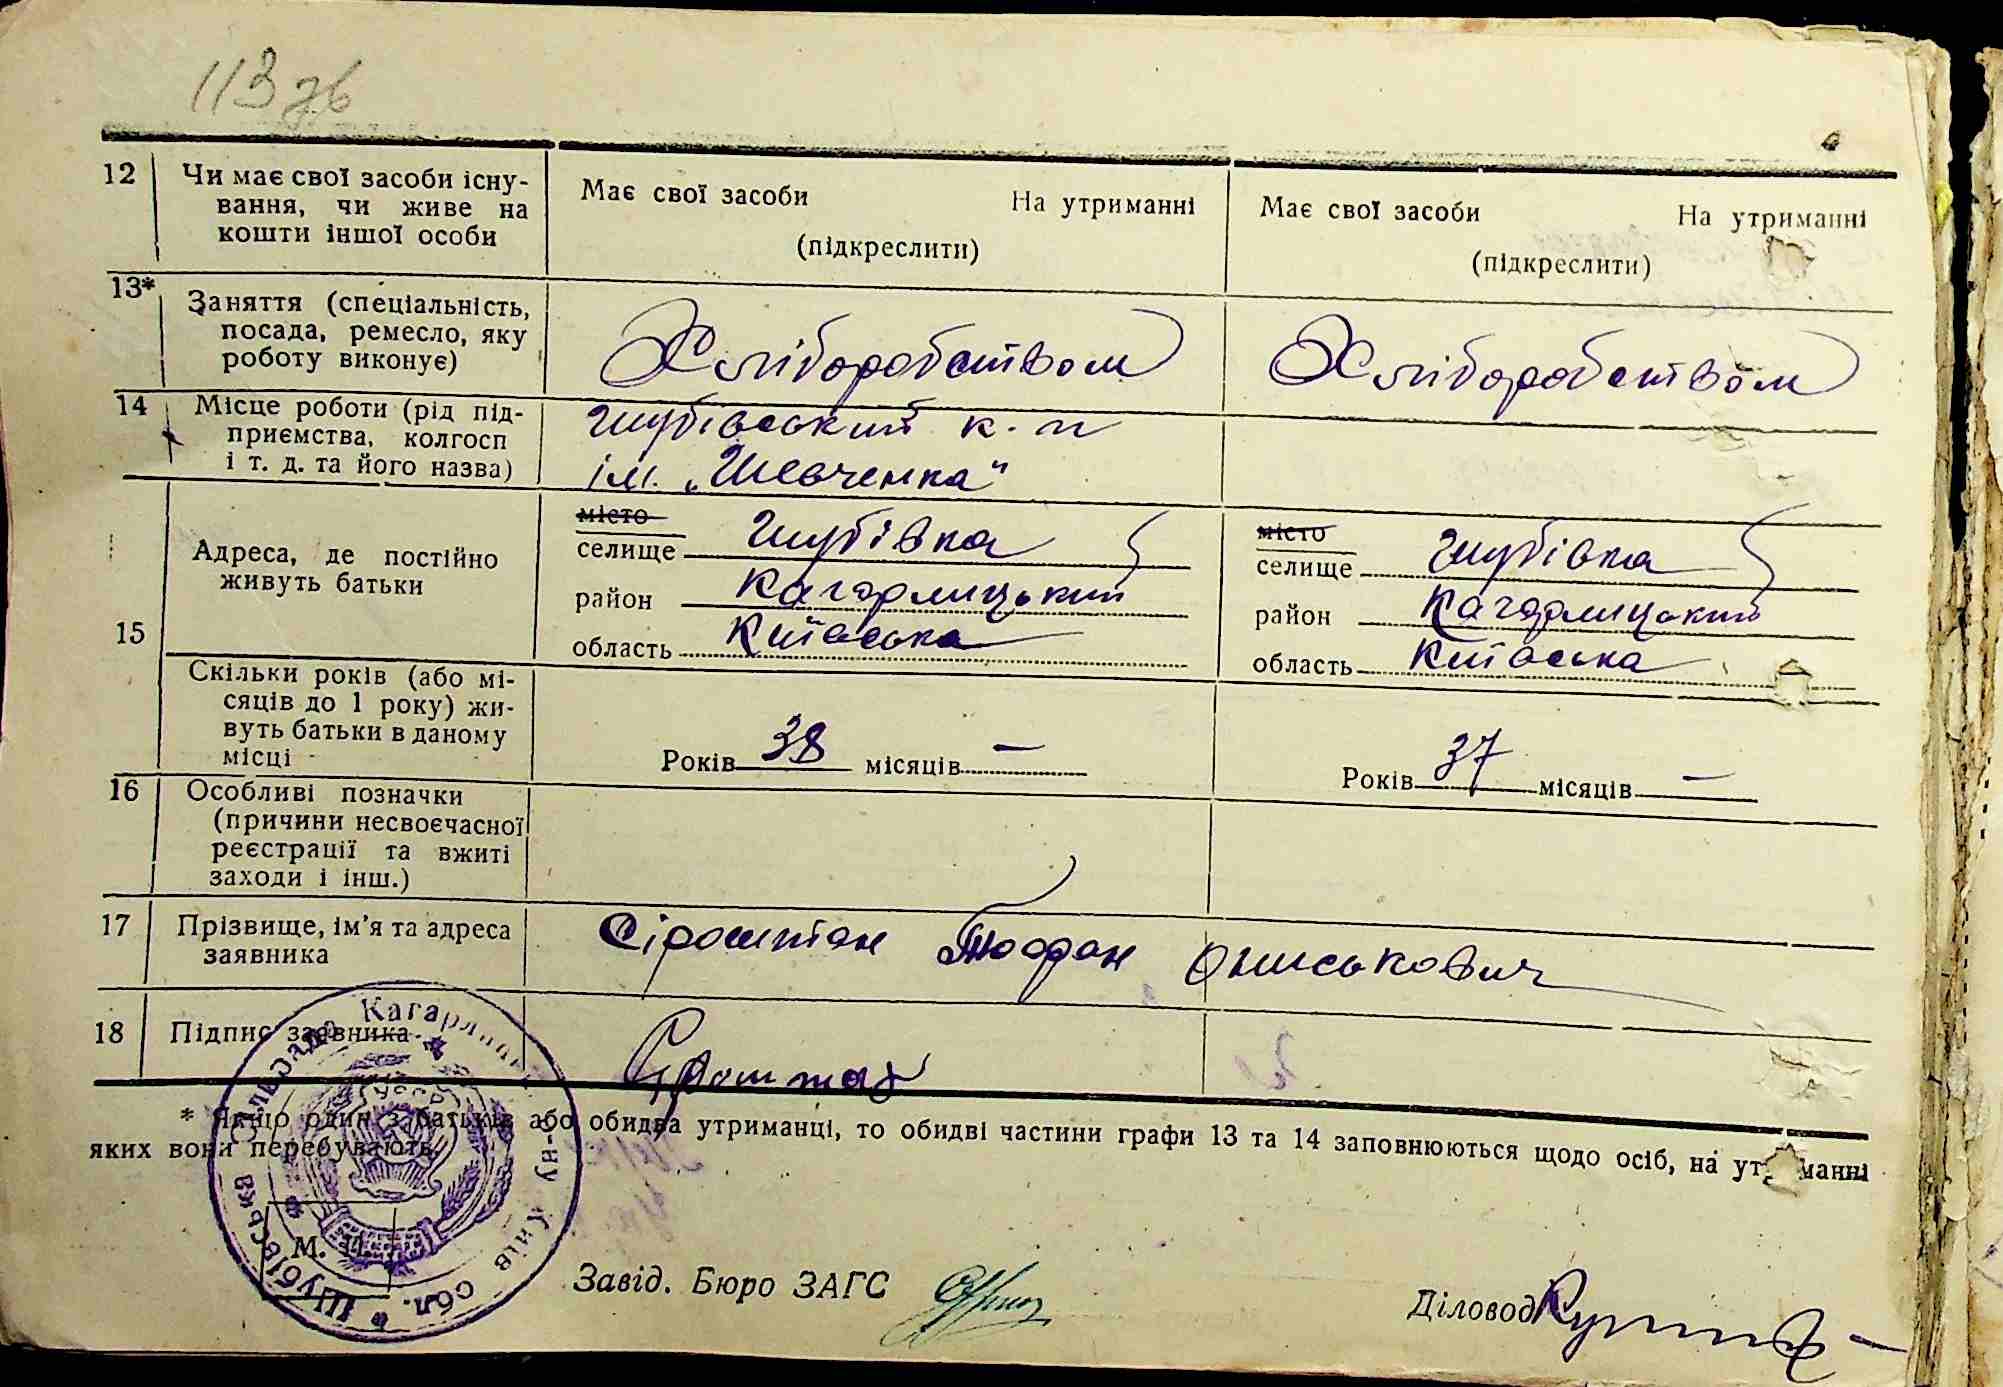 113 зв
12 Чи має свої засоби існу-
вання, чи живе на
кошти іншої особи
Має свої засоби На утриманні
(підкреслити)
Має свої засоби На утриманні
(підкреслити)
13* Заняття (спеціальність,
посада, ремесло, яку
роботу виконує)
Хліборобством
Хліборобством
14 Місце роботи (рід під-
приємства, колгосп
і т. д. та його назва)
Шубівський к. г
ім. „Шевченка"
15 Адреса, де постійно
живуть батьки
місто
селище Шубівка
район Кагарлицький
область Київська
місто
селище Шубівка
район Кагарлицький
область Київська
Скільки років (або мі-
сяців до 1 року) жи-
вуть батьки в даному
місці
Років 38 місяців —
Років 37 місяців —
16 Особливі позначки
(причини несвоєчасної
реєстрації та вжиті
заходи і інш.)
17 Прізвище, ім'я та адреса
заявника
Сіроштан Ониськович
18 Підпис заявника
* Якщо один з батьків або обидва утриманці, то обидві частини графи 13 та 14 заповнюються щодо осіб, на утриманні
яких вони перебувають.
Шубівська сільрада Кагарлицьк. р-ну Київ обл.
УССР
М. П.
Завід. Бюро ЗАГС
Діловод